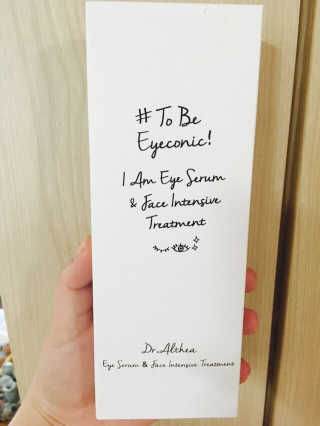 # To Be
Eyeconic!
I Am Eye Serum
& Face Intensive
Treatment
Dr.Althea
Eye Serum & Face Intensive Treatment